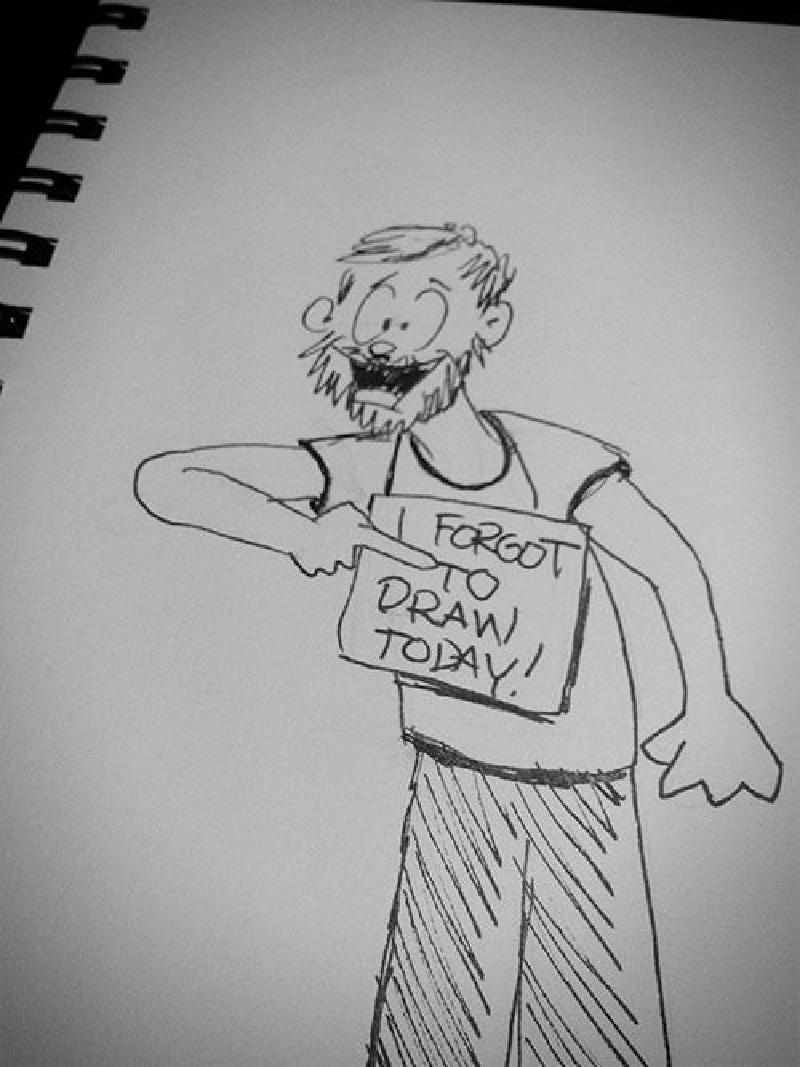 I FORGOT
TO
DRAW
TODAY!